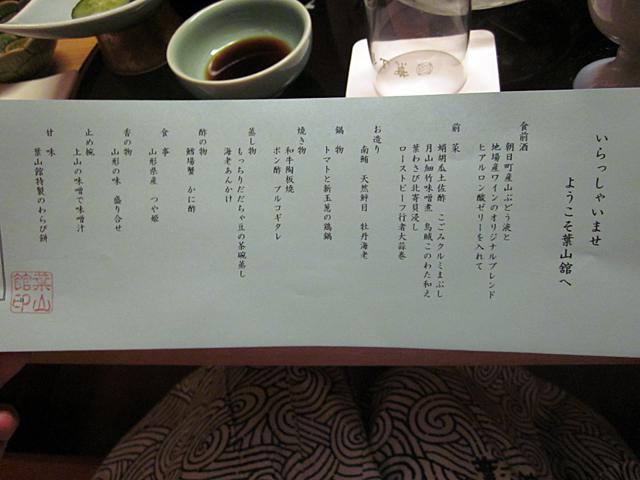 いらっしゃいませ
ようこそ葉山舘へ
食前酒
朝日町産山ぶどう液と
地場産ワインのオリジナルブレンド
ヒアルロン酸ゼリーを入れて
前菜
蛸胡瓜土佐酢 こごみクルミまぶし
月山細竹味噌煮 烏賊このわた和え
葉わさび北寄貝浸し
ローストビーフ行者大蒜巻
お造り
南鮪 天然鮮目 牡丹海老
鍋物
トマトと新玉葱の鶏鍋
焼き物
和牛陶板焼
ポン酢 アルコギタレ
蒸し物
もっちりだだちゃ豆の茶碗蒸し
海老あんかけ
酢の物
鱈場蟹 かに酢
食事
山形県産 つや姫
香の物
山形の味 盛り合せ
止め椀
上山の味噌で味噌汁
甘味
葉山舘特製のわらび餅
葉山
舘印